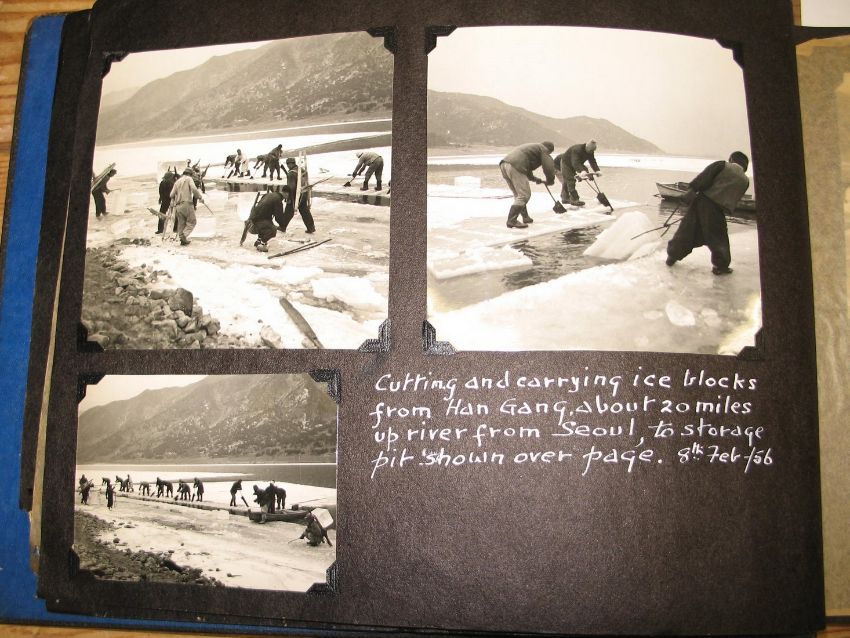 Cutting and carrying ice blocks
from Han Gang, about 20 miles
up river from Seoul, to storage
pit shown over page. 8th Feb/56